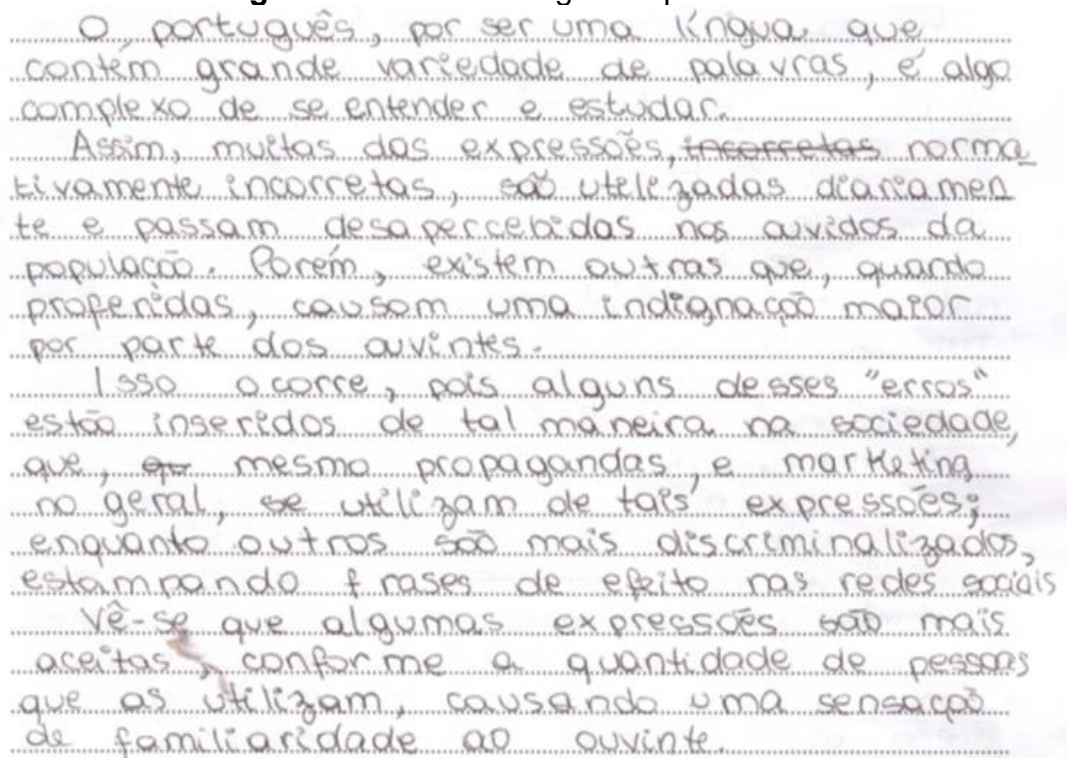 O português, por ser uma língua que
contém grande variedade de palavras, é algo
complexo de se entender e estudar.
Assim, muitas das expressões, incorretas norma
tivamente incorretas, são utilizadas diariamen
te e passam desapercebidas nos ouvidos da
população. Porém, existem outras que, quando
proferidas, causam uma indignação maior
por parte dos ouvintes.
Isso ocorre, pois alguns desses "erros"
estão inseridos de tal maneira na sociedade,
que, qu mesmo propagandas, e marketing
no geral, se utilizam de tais expressões;
enquanto outros são mais discriminalizados,
estampando frases de efeito nas redes sociais
Vê-se que algumas expressões são mais
aceitas, conforme a quantidade de pessoas
que as utilizam, causando uma sensação
de familiaridade ao ouvinte.